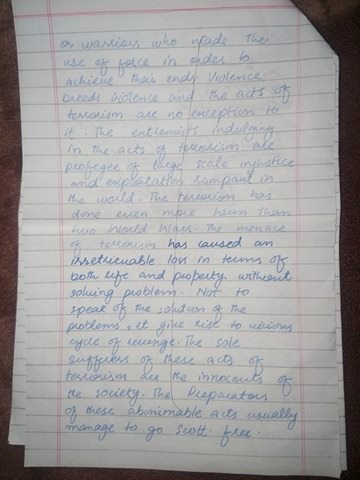 or warriors who made the
use of force in order to
achieve their ends. Violence
breeds violence and the acts of
terrorism are no exception to
it. The extremists indulging
in the acts of terrorism are
profegee of large scale injustice
and exploitation rampant in
the world. The terrorism has
done even more harm than
two World Wars. The menace
of terrorism has caused an
irretrievable loss in terms of
both life and property without
solving problem. Not to
speak of the solution of the
problems, it give rise to vicious
cycle of revenge. The sole
sufferers of these acts of
terrorism are the innocents of
the society. The Preparators
of these abminable acts usually
manage to go Scott free.